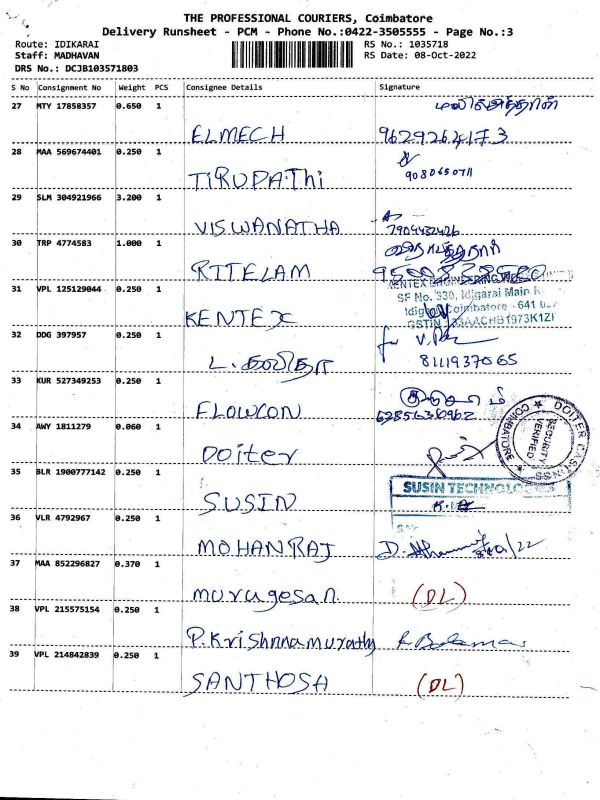 THE PROFESSIONAL COURIERS, Coimbatore
Delivery Runsheet - PCM - Phone No.:0422-3505555 - Page No.:3
Route: IDIKARAI
RS No.: 1035718
Staff: MADHAVAN
RS Date: 08-Oct-2022
DRS No.: DCJB103571803
S No Consignment No Weight PCS Consignee Details Signature
27 MTY 17858357 0.650 1
ELMECH 9629264173
28 MAA 569674401 0.250 1
TIRUPAThi 908065071
29 SLM 304921966 3.200 1
VISWANATHA 7904432426
30 TRP 4774583 1.000 1
RITELAM
31 VPL 125129044 0.250 1
KENTEX
KENTEX ENGINEERING
SF No. 330, Idigarai Main
Coimbatore - 641
GSTIN : 33AACHB1973K1ZI
32 DDG 397957 0.250 1
L. கவிதா 8111937065
33 KUR 527349253 0.250 1
FLOWCON
34 AWY 1811279 0.060 1
Doiter
DOITER CASTINGS
COIMBATORE
SECURITY
VERIFIED
35 BLR 1900777142 0.250 1
SUSIN
SUSIN TECHNOLOGIES
36 VLR 4792967 0.250 1
MOHANRAJ
37 MAA 852296827 0.370 1
murugesan. (DL)
38 VPL 215575154 0.250 1
P.Krishnnamurathy
39 VPL 214842839 0.250 1
SANTHOSA (DL)